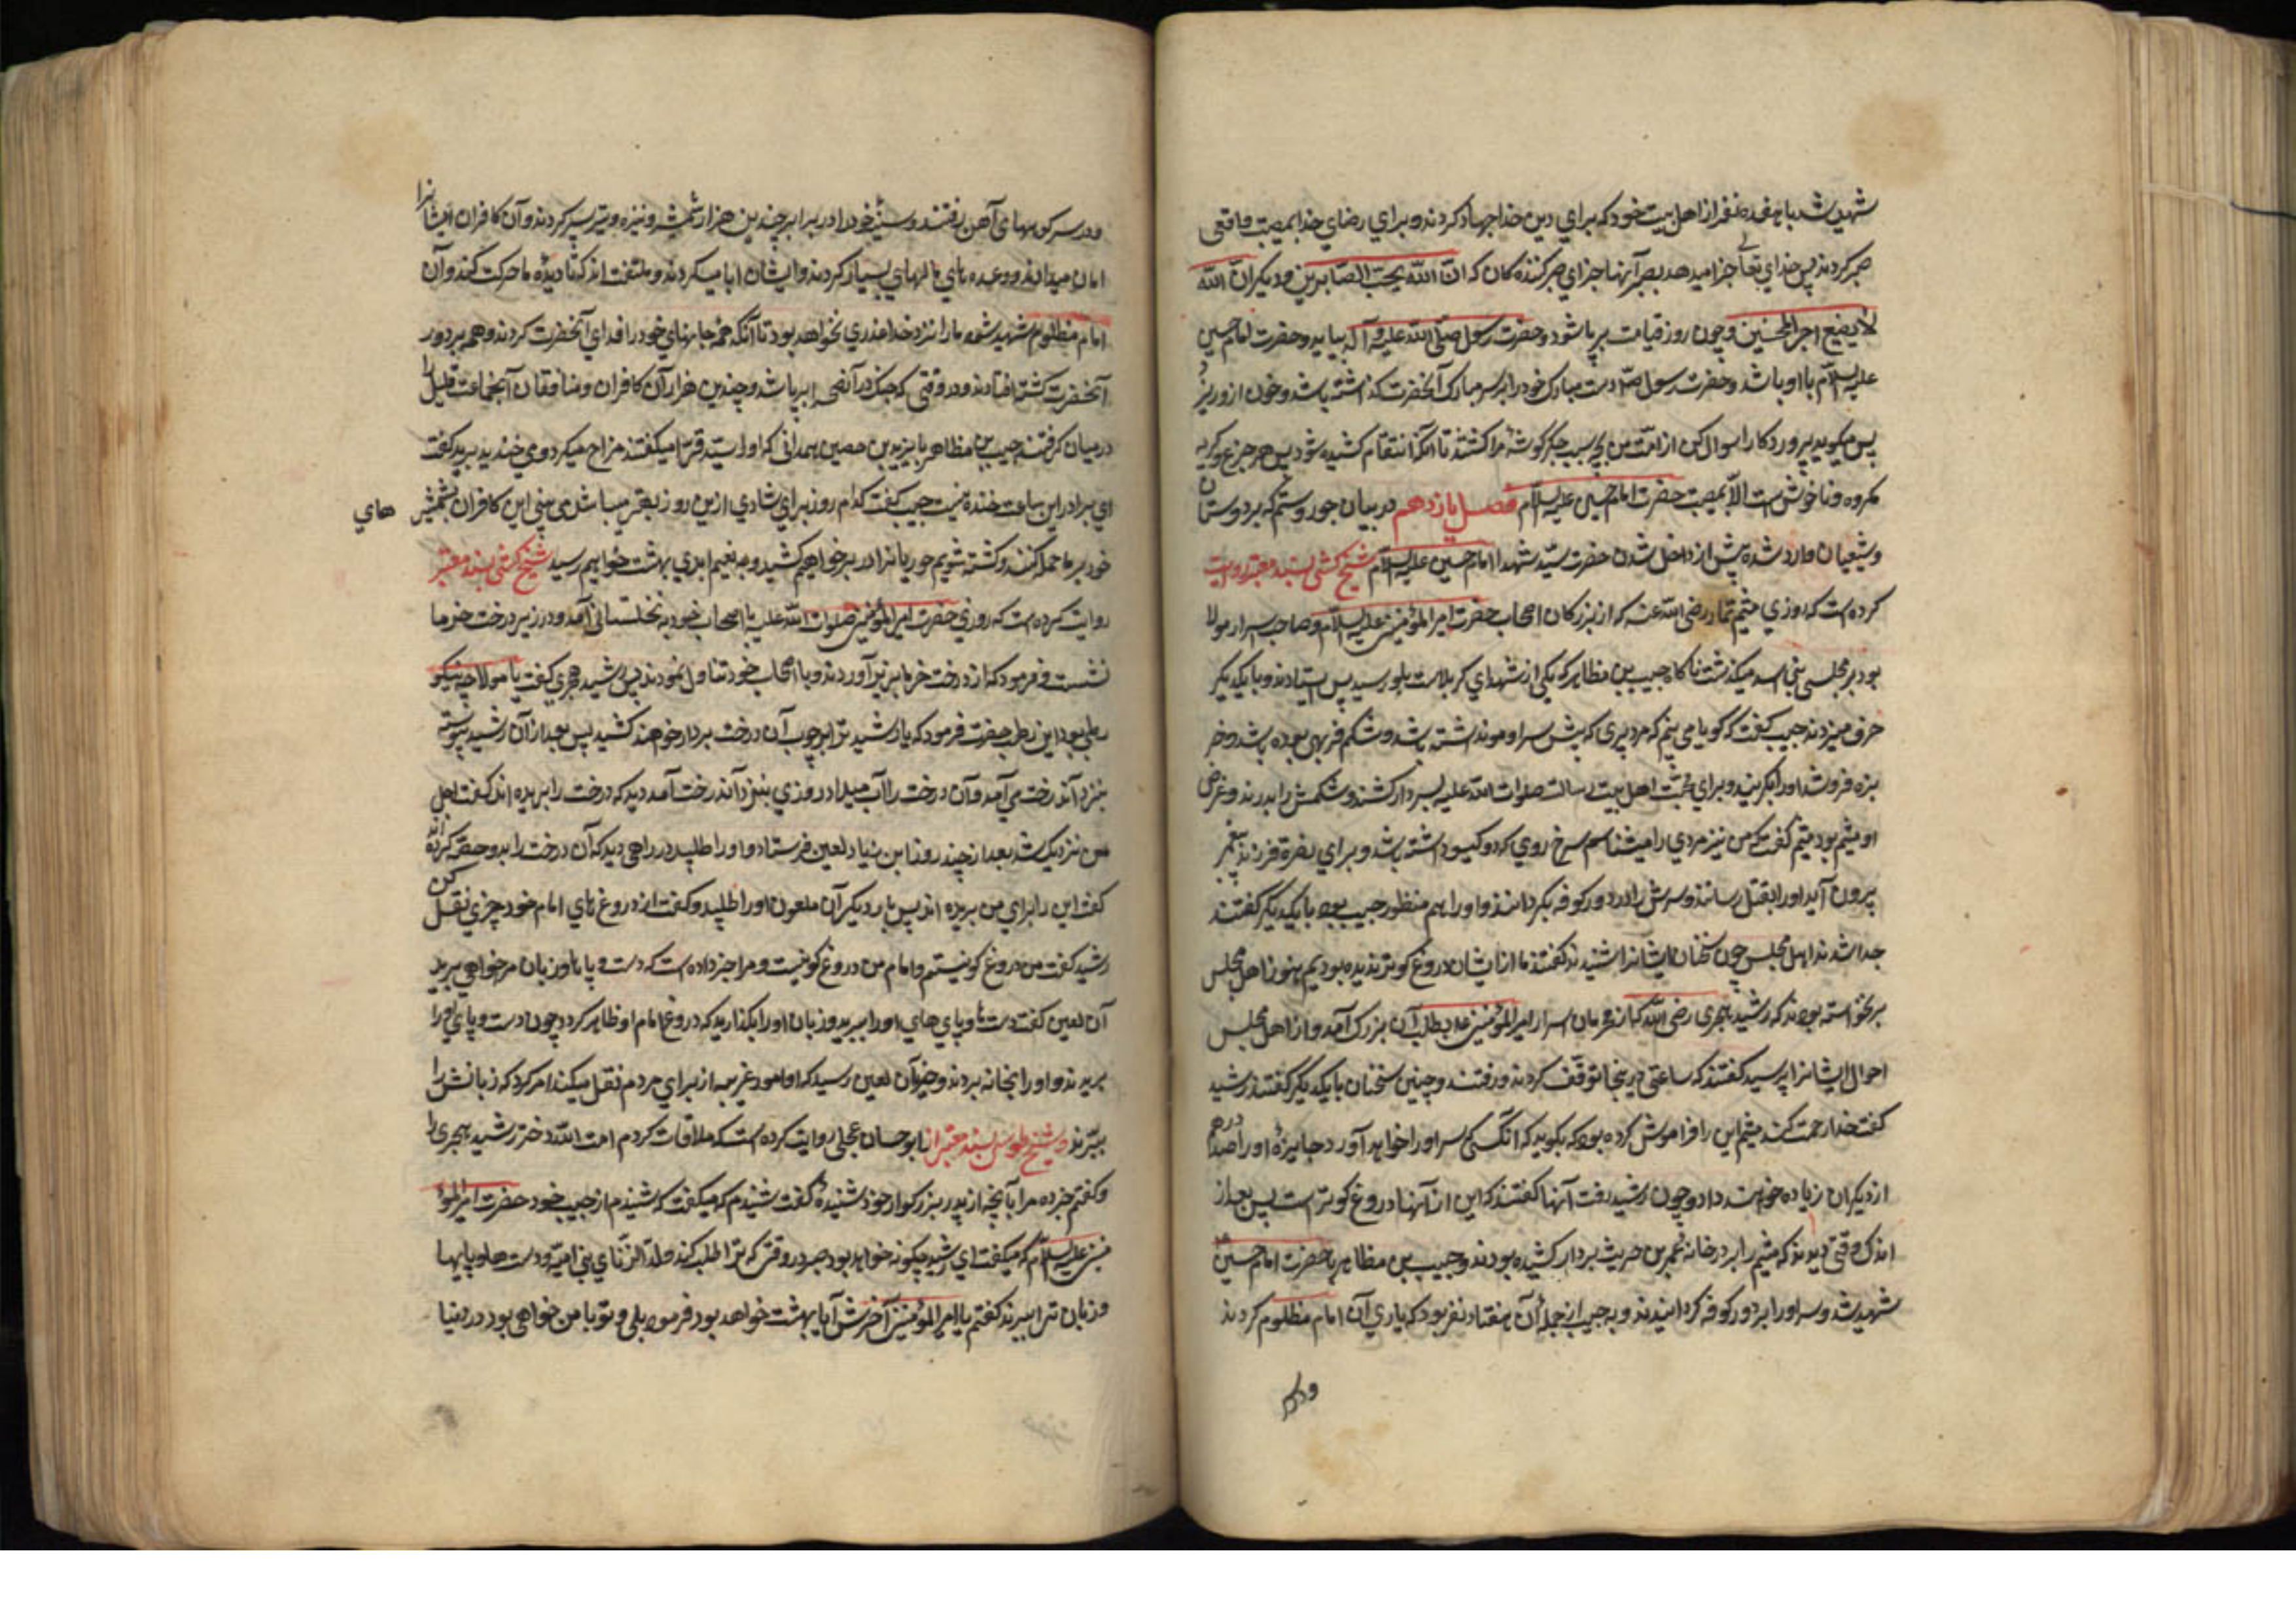 شهید شد با هفده نفر از اهل بیت خود که برای دین خدا جهاد کردند و برای رضای خدا بمصیبت واقعی
صبر کردند پس خدای تعالی جزا میدهد بصبر آنها جزای صبر کننده کان که ان الله یحب الصابرین و دیگر ان الله
لا یضیع اجر المحسنین و چون روز قیامت بر پا شود و حضرت رسول صلی الله علیه و آله بیاید و حضرت امام حسین
علیه السلام با او باشد و حضرت رسول ص دست مبارک خود را بر سر مبارک آنحضرت گذاشته باشد و خون ازو ریزد
پس میگوید پروردگارا سوال کن از امت من بچه سبب جگر گوشهٔ مرا کشتند تا آنکه انتقام کشیده شود پس هر جزع و گریه
مکروه و ناخوش ست الا بمصیبت حضرت امام حسین علیه السلام فصل یازدهم در بیان جور و ستم که بر دوستان
و شیعیان وارد شده پیش از داخل شدن حضرت سید شهدا امام حسین علیه السلام شیخ کشی بسند معتبر روایت
کرده است که روزی میثم تمار رضی الله عنه که از بزرکان اصحاب حضرت امیر المؤمنین علیه السلام و صاحب سر ار مولا
بود بر مجلسی بنی اسد میگذشت ناگاه حبیب بن مظاهر که یکی از شهدای کربلاست باو رسید پس ایستادند و با یکدیگر
حرف میزدند حبیب گفت که گویا می بینم که مرد پیری که پیش سر او مو نداشته باشد و شکم فربهی بوده باشد و خر
بزه فروشد او را بگیرند و برای محبت اهل بیت رسالت صلوات الله علیه بسر دار کشند و شکمش را بدرند و غرض
او میثم بود میثم گفت که من نیز مردی را میشناسم سرخ روی که دو کیسو داشته باشد و برای نصرة فرزند پیغمبر
بیرون آید او را بقتل رسانند و سرش را در دور کوفه بگردانند و او را هم منظور حبیب بود با یکدیگر گفتند
جدا شدند اهل مجلس چون سخنان ایشانرا شنیدند گفتند ما از ایشان دروغ گو تر ندیده بودیم هنوز اهل مجلس
برنخواسته بودند که رشید هجری رضی الله که از محرمان اسرار امیر المؤمنین ع بطلب آن بزرک آمد و از اهل مجلس
احوال ایشانرا پرسید گفتند که ساعتی در ینجا توقف کردند و رفتند و چنین سخنان با یکدیگر گفتند رشید
گفت خدا رحمت کند میثم این را فراموش کرده بود که بگوید که آنکسی سر او را خواهد آورد جایزهٔ او را صد درهم
از دیگران زیاده خواهند داد و چون رشید رفت آنها گفتند که این از آنها دروغ گو تر است پس بعد از
اندک وقتی دیدند که میثم را بر در خانه عمر بن حریث بردار کشیده بودند و حبیب بن مظاهر با حضرت امام حسین
شهید شد و سر او را بر دور کوفه گردانیدند و به حبیب از جمله آن هفتاد نفر بود که یاری آن امام مظلوم کردند
ودر سر کوههای آهن رفتند و سینهٔ خود را در برابر چندین هزار شمشیر و نیزه و تیر سپر کردند و آن کافران ایشانرا
امان میدادند و وعده های مالهای بسیار کردند و ایشان ابا میکردند و ملتفت اند که تا دیدهٔ ما حرکت کند و آن
امام مظلوم شهید شود ما را نزد خدا عذری نخواهد بود تا آنکه همه جانهای خود را فدای آنحضرت کردند و همه بر دور
آنحضرت کشته افتادند و در وقتی که جنک در آنصحرا بر پا شد و چندین هزار آن کافران و منافقان آنجماعت قلیل را
در میان گرفتند حبیب بن مظاهر با یزید بن حصین همدانی که او را سید قرا میگفتند مزاح میکرد و می خندید برید گفت
ای برادر این ساعت خنده نیست حبیب گفت کدام روز برای شادی ازین روز بهتر میباشد می بینی این کافران بشمشیر های
خود بر ما حمله کنند و کشته شویم حوریانرا در بر خواهیم کشید و به نعیم ابدی بهشت خواهیم رسید شیخ کشی بسند معتبر
روایت کرده است که روزی حضرت امیر المؤمنین صلوات الله علیه با اصحاب خود به نخلستانی آمد و در زیر درخت خرما
نشست و فرمود که از درخت خرما بزیر آوردند و با اصحاب خود تناول نمودند پس رشید هجری گفت یا مولا چه نیکو
رطبی بود این رطب حضرت فرمود که یا رشید ترا بر چوب آن درخت بردار خواهند کشید پس بعد از آن رشید پیوسته
بنزد آندرخت می آمد و آن درخت را آب میداد روزی بنزد آندرخت آمد دید که درخت را بریده اند گفت اجل
من نزدیک شد بعد از چند روز ابن زیاد لعین فرستاد و او را طلبید در راهی دید که آن درخت را بدو حصه کرده اند
گفت این را برای من بریده اند پس بار دیگر آن ملعون او را طلبید و گفت از دروغ های امام خود چیزی نقل کن
رشید گفت من دروغ گو نیستم و امام من دروغ گو نیست و مرا خبر داده است که دست و پاها و زبان مرا خواهی برید
آن لعین گفت دست ها و پای های او را ببرید و زبان او را بگذارید که دروغ امام او ظاهر گردد چون دست و پای او را
بریدند و او را بخانه بردند و خبر بآن لعین رسید که او امور غریبه از برای مردم نقل میکند امر کرد که زبانش را
ببرند و شیخ طوسی بسند معتبر از ابو حسان عجلی روایت کرده است که ملاقات کردم امت الله دختر رشید هجری را
و گفتم خبر ده مرا بآنچه از پدر بزرکوار خود شنیدهٔ گفت شنیدم که میگفت که شنیدم از حبیب خود حضرت امیر المؤ
منین علیه السلام که میگفت ای رشید چگونه خواهد بود صبر در وقتی که ترا طلب کند ولد الزنای بنی امیه و دست ها و پایها
و زبان ترا ببرند گفتم یا امیر المؤمنین آخرش آیا بهشت خواهد بود فرمود بلی و تو با من خواهی بود در دنیا